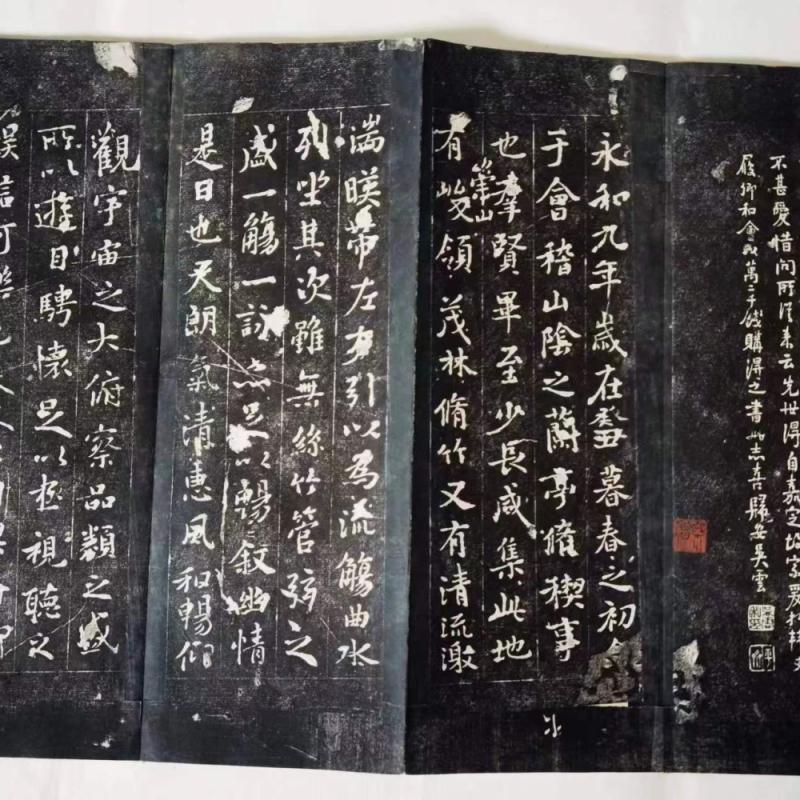 不甚愛惜問所從來云先世得自嘉定
履卿和會以萬二千錢購得之書此志喜歸安吳雲
永和九年歲在癸丑暮春之初會
于會稽山陰之蘭亭脩稧事
也羣賢畢至少長咸集此地
有崇山峻領茂林脩竹又有清流激
湍暎帶左右引以為流觴曲水
列坐其次雖無絲竹管弦之
盛一觴一詠亦足以暢敘幽情
是日也天朗氣清惠風和暢仰
觀宇宙之大俯察品類之盛
所以遊目騁懷足以極視聽之
娛信可樂也夫人之相與